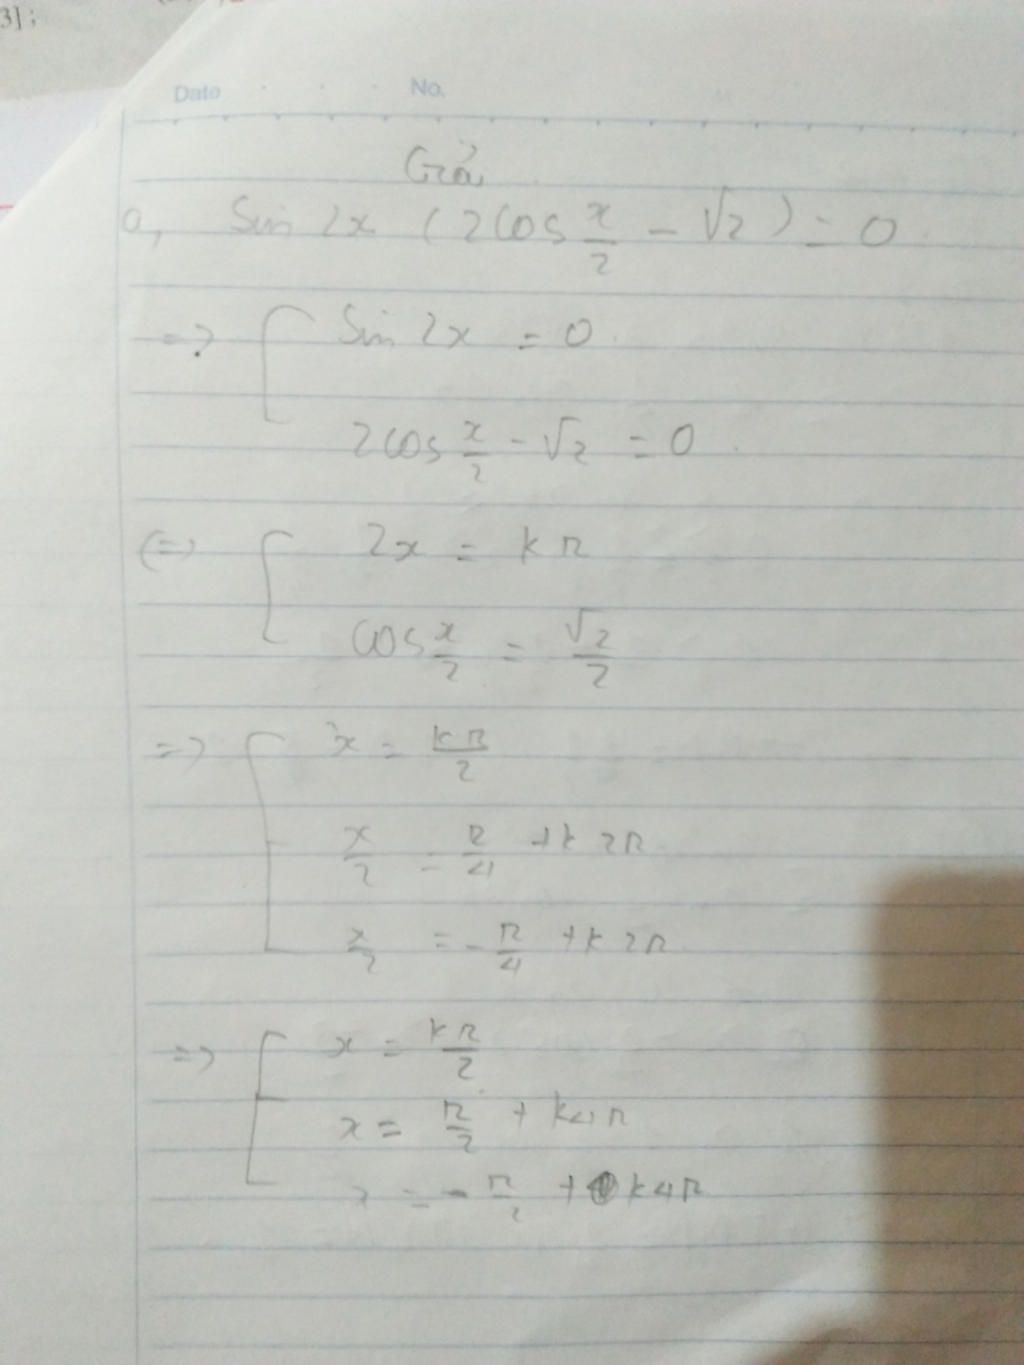 3];
Date No.
Giải
a, Sin 2x (2cos x/2 - √2) = 0
=> [ Sin 2x = 0
2cos x/2 - √2 = 0
<=> [ 2x = kπ
cos x/2 = √2/2
=> [ x = kπ/2
x/2 = π/4 + k2π
x/2 = -π/4 + k2π
=> [ x = kπ/2
x = π/2 + k4π
x = -π/2 + k4π